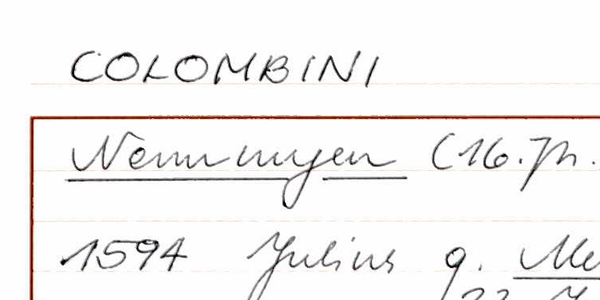 COLOMBINI
Nenningen (16. Jh.
1594 Julius g. Me
22